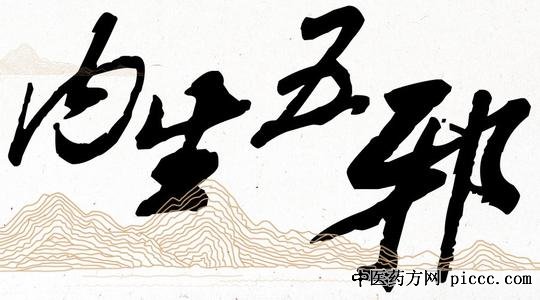 内生五邪
中医药方网 piccc.com